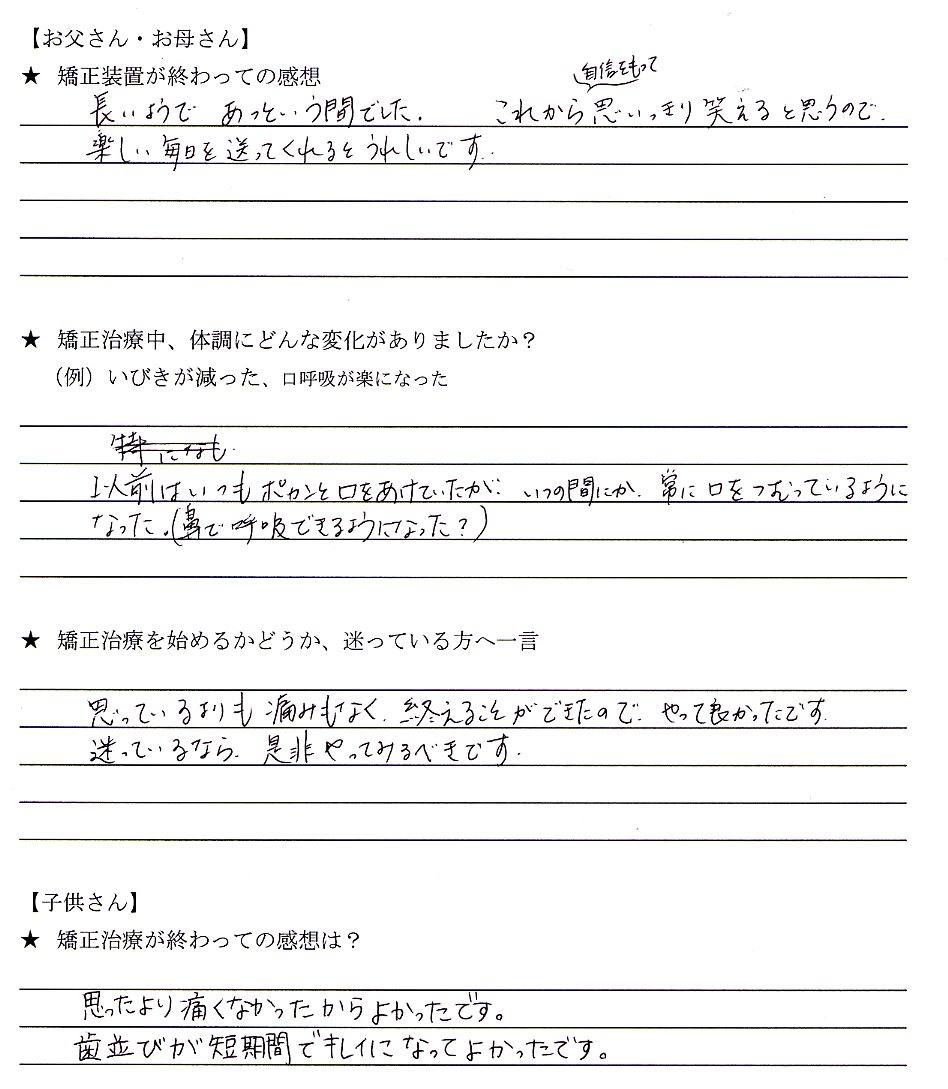 【お父さん・お母さん】
★ 矯正装置が終わっての感想
自信をもって
長いようで あっという間でした. これから思いっきり笑えると思うので.
楽しい毎日を送ってくれるとうれしいです.
★ 矯正治療中、体調にどんな変化がありましたか？
（例）いびきが減った、口呼吸が楽になった
特になし.
以前はいつもポカンと口をあけていたが. いつの間にか. 常に口をつむっているように
なった.(鼻で呼吸できるようになった？)
★ 矯正治療を始めるかどうか、迷っている方へ一言
思っているよりも痛みもなく. 終えることができたので. やって良かったです.
迷っているなら. 是非やってみるべきです.
【子供さん】
★ 矯正治療が終わっての感想は？
思ったより痛くなかったからよかったです。
歯並びが短期間でキレイになってよかったです。